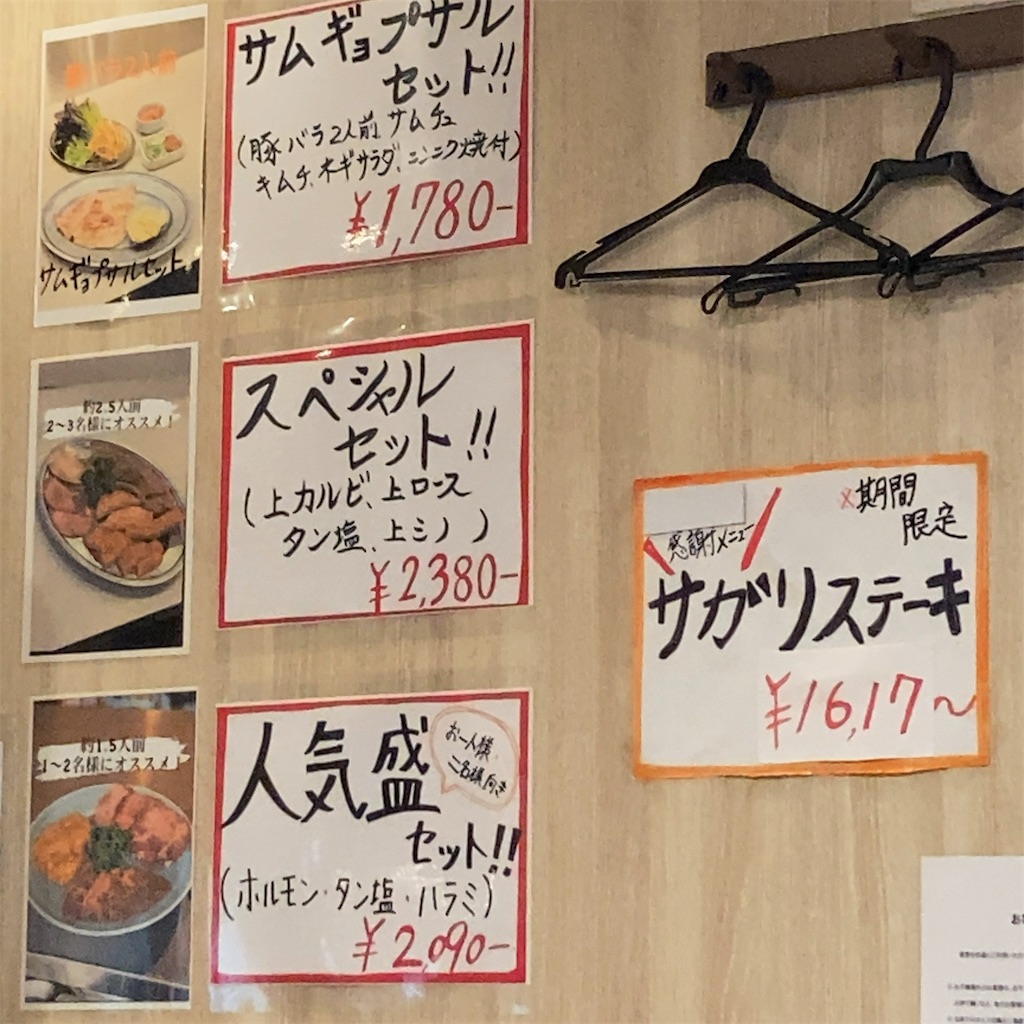 バラ2人前
サムギョプサルセット
サムギョプサル
セット!!
(豚バラ2人前 サムチュ
キムチ、ネギサラダ、ニンニク焼付)
¥1,780-
約2.5人前
2〜3名様にオススメ!
スペシャル
セット!!
(上カルビ、上ロース
タン塩、上ミノ)
¥2,380-
約1.5人前
1〜2名様にオススメ!
人気盛
お一人様・
二名様向き
セット!!
(ホルモン・タン塩・ハラミ)
¥2,090-
※期間
限定
感謝メニュー
サガリステーキ
¥16,17〜